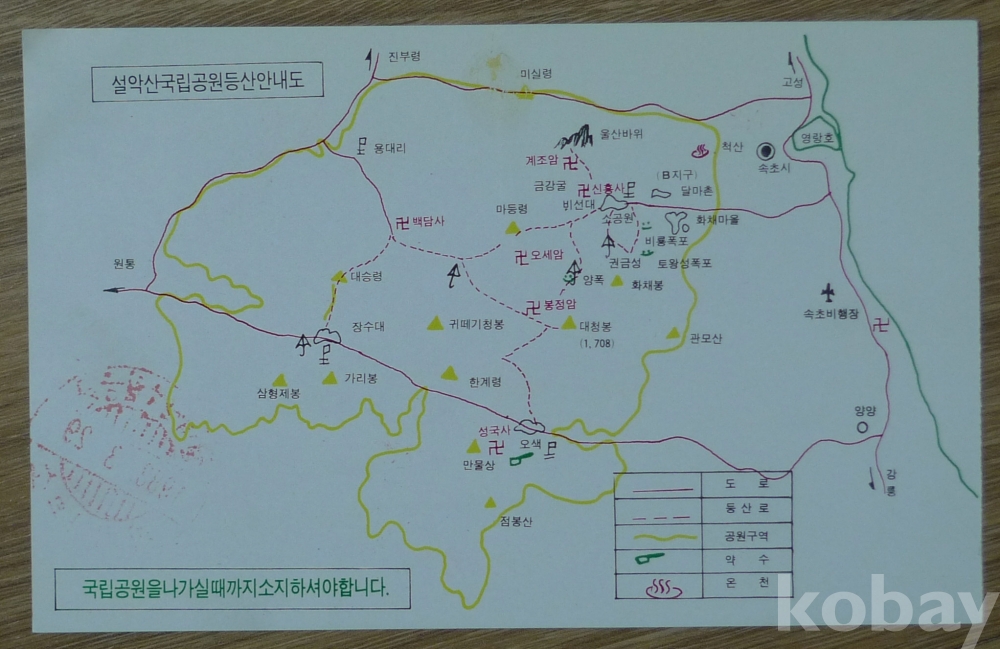 진부령
설악산국립공원등산안내도
미실령
고성
용대리
울산바위
계조암
척산
영랑호
속초시
금강굴
신흥사
(B지구)
달마촌
비선대
소공원
화채마을
백담사
마등령
비룡폭포
오세암
권금성
토왕성폭포
원통
대승령
양폭
화채봉
봉정암
속초비행장
장수대
귀떼기청봉
대청봉
(1,708)
관모산
가리봉
한계령
삼형제봉
양양
성국사
오색
만물상
강릉
점봉산
도 로
등 산 로
공원구역
약 수
온 천
국립공원을나가실때까지소지하셔야합니다.
kobay